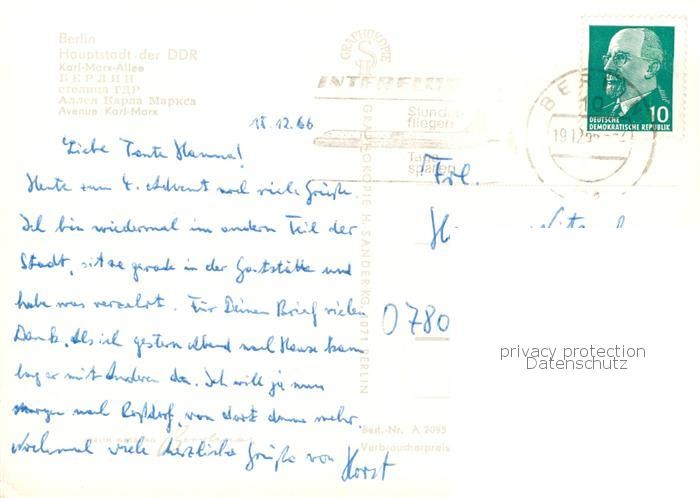 Berlin
Hauptstadt der DDR
Karl-Marx-Allee
БЕРЛИН
столица ГДР
Аллея Карла Маркса
Avenue Karl-Marx
GRAPHOKOPIE
INTERFLUG
Stunden
fliegen
Tage
sparen
BERLIN
19.12.66
10
DEUTSCHE
DEMOKRATISCHE REPUBLIK
18.12.66
Liebe Tante Hanna!
Heute zum 4. Advent noch viele Grüße.
Ich bin wiedermal im andern Teil der
Stadt, sitze gerade in der Gaststätte und
habe was verzehrt. Für Deinen Brief vielen
Dank. Als ich gestern Abend nach Hause kam
lag er mit Anderen da. Ich will ja nun
morgen nach Roßdorf, von dort dann mehr.
Nochmal viele herzliche Grüße von Horst
Frl.
0780
GRAPHOKOPIE H. SANDER KG, 1071 BERLIN
Best.-Nr. A 2095
Verbraucherpreis
privacy protection
Datenschutz